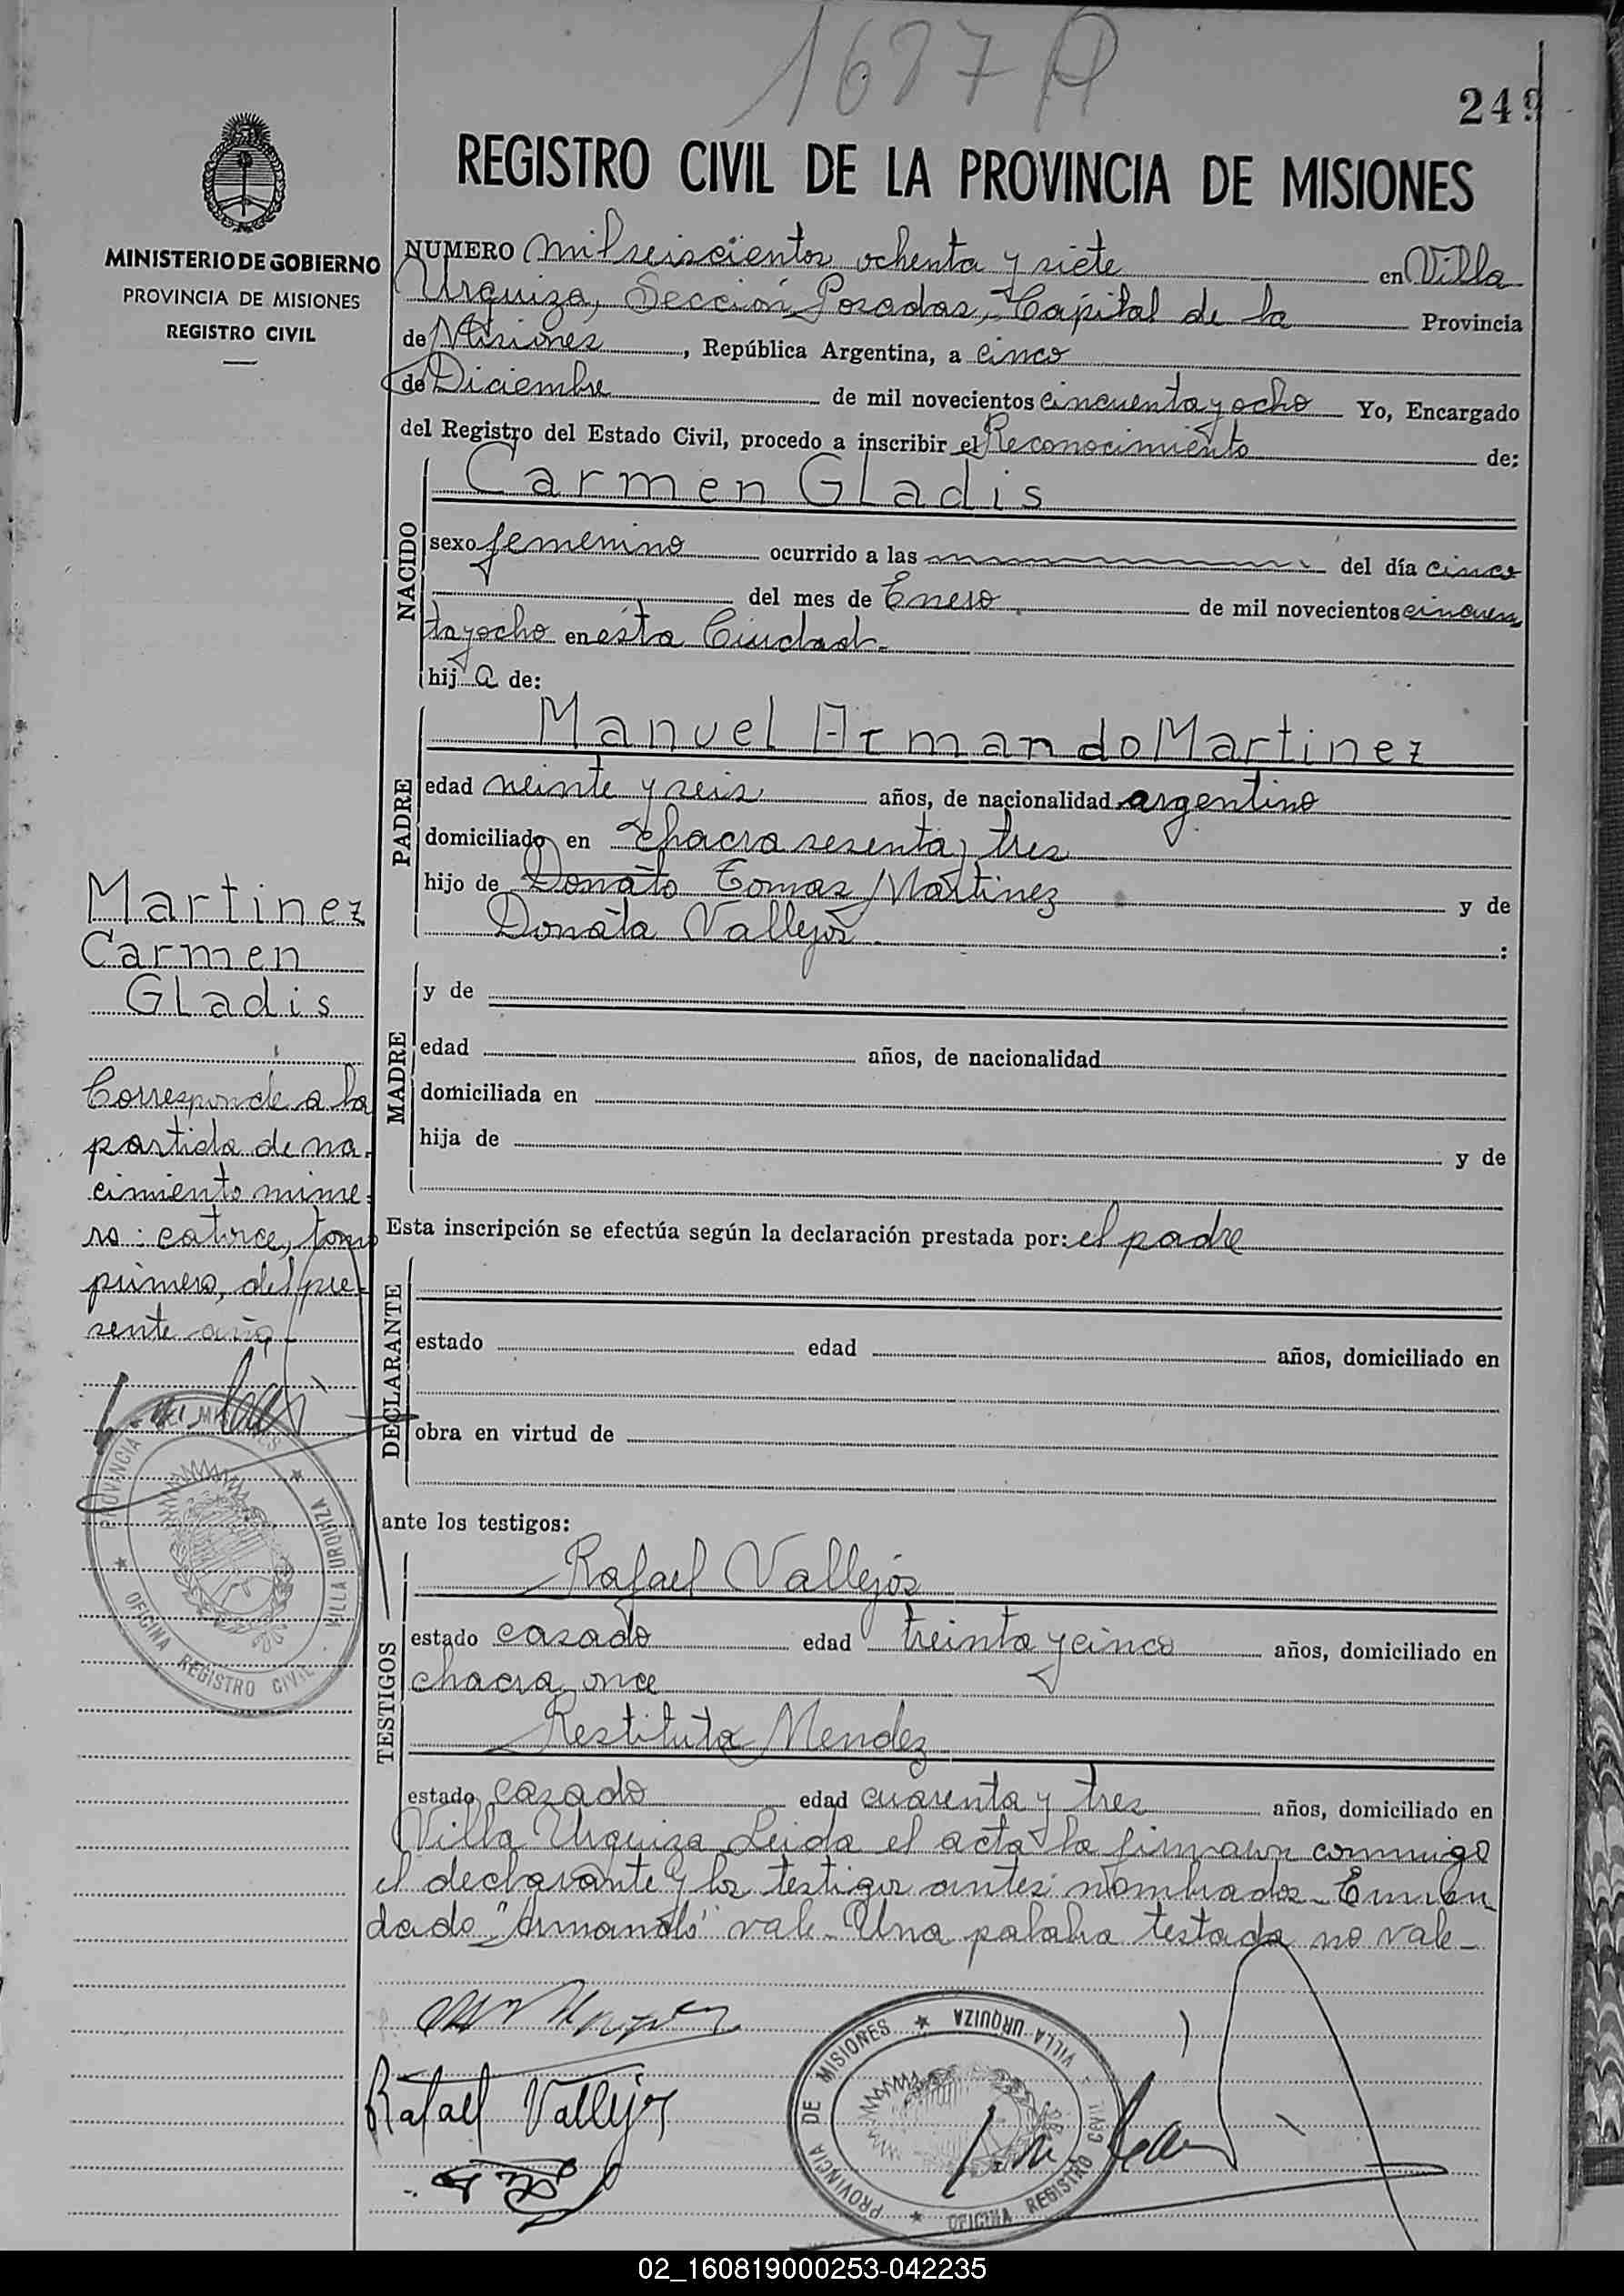 1687 A
249
REGISTRO CIVIL DE LA PROVINCIA DE MISIONES
MINISTERIO DE GOBIERNO
PROVINCIA DE MISIONES
REGISTRO CIVIL
NUMERO mil seiscientos ochenta y siete en Villa
Urquiza, Sección Posadas, Capital de la Provincia
de Misiones, República Argentina, a cinco
de Diciembre de mil novecientos cincuenta y ocho Yo, Encargado
del Registro del Estado Civil, procedo a inscribir el Reconocimiento de:
NACIDO
Carmen Gladis
sexo femenino ocurrido a las del día cinco
del mes de Enero de mil novecientos cincuen
ta y ocho en ésta Ciudad.
hija de:
PADRE
Manuel Armando Martinez
edad veinte y seis años, de nacionalidad argentino
domiciliado en chacra sesenta y tres
hijo de Donato Tomas Martinez y de
Donata Vallejos :
MADRE
y de
edad años, de nacionalidad
domiciliada en
hija de y de
Esta inscripción se efectúa según la declaración prestada por: el padre
DECLARANTE
estado edad años, domiciliado en
obra en virtud de
ante los testigos:
TESTIGOS
Rafael Vallejos
estado casado edad treinta y cinco años, domiciliado en
chacra once
Restituto Mendez
estado casado edad cuarenta y tres años, domiciliado en
Villa Urquiza Leida el acta la firmaron conmigo
el declarante y los testigos antes nombrados - Enmen
dado "Armando" vale - Una palabra testada no vale -
Rafael Vallejos
PROVINCIA DE MISIONES ★ VILLA URQUIZA
★ OFICINA REGISTRO CIVIL
Martinez
Carmen
Gladis
Corresponde a la
partida de na-
cimiento núme-
ro: catorce, tomo
primero, del pre-
sente año
PROVINCIA DE MISIONES ★ VILLA URQUIZA
★ OFICINA REGISTRO CIVIL
02_160819000253-042235